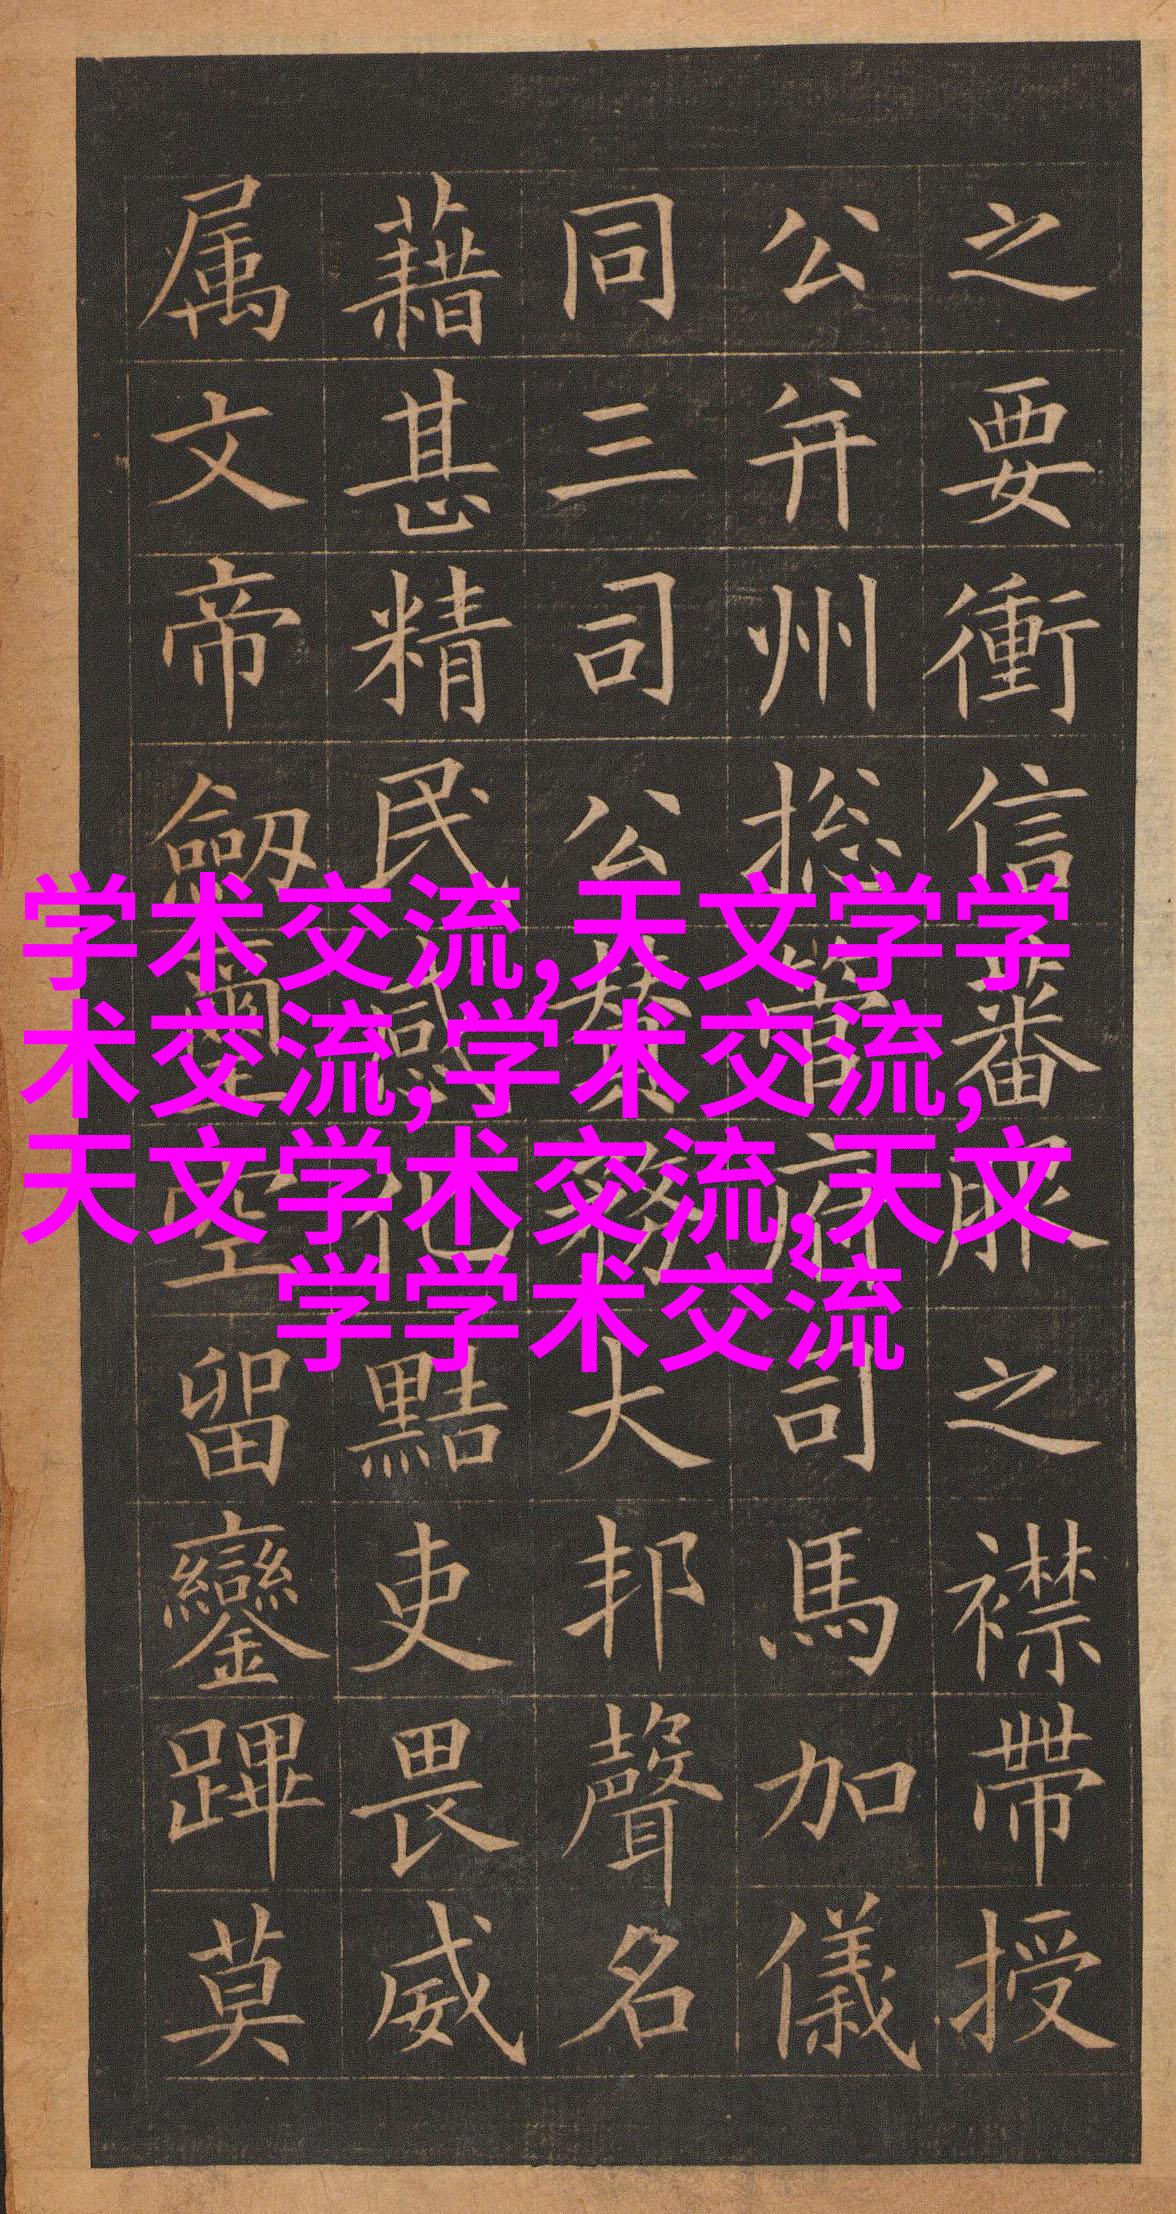 之要衝信蕃服之襟帶授
公并州揔管府司馬加儀
同三司公贊務大邦聲名
藉甚精民感化黠吏畏威
属文帝劒璽空留鑾蹕莫
学术交流,天文学学
术交流,学术交流,
天文学术交流,天文
学学术交流